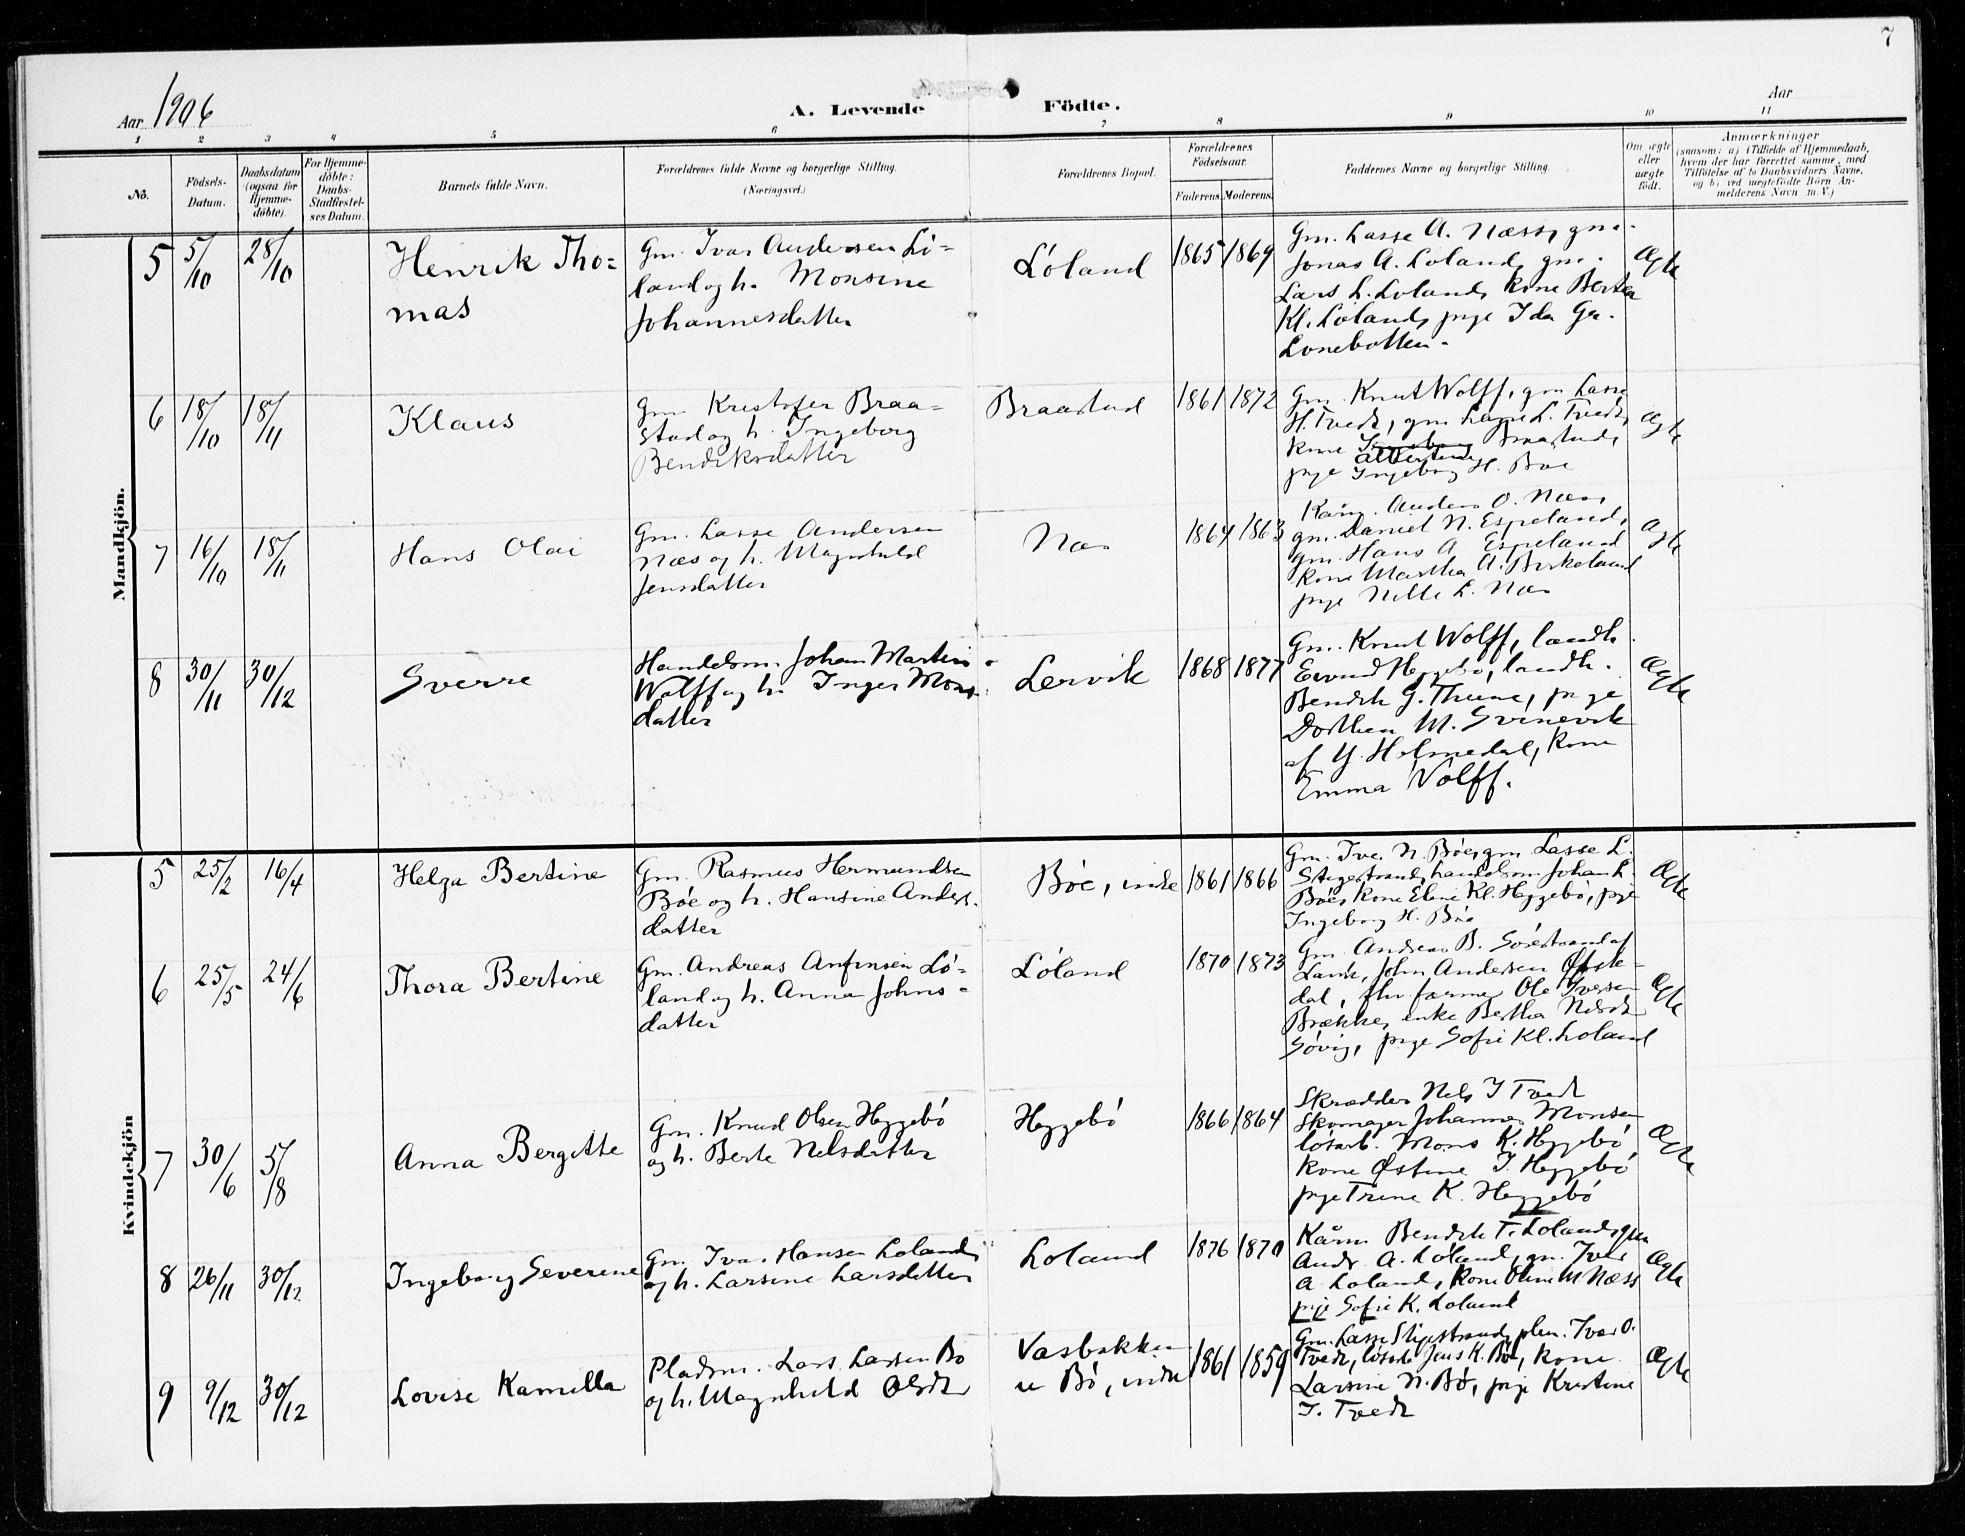 7
Aar 1906
A. Levende Födte.
Aar
1 2 3 4 5 6 7 8 9 10 11
No.
Födsels-Datum.
Daabsdatum (ogsaa for Hjemme-döbte).
For Hjemme-döbte: Daabs-Stadfæstel-ses Datum.
Barnets fulde Navn.
Forældrenes fulde Navne og borgerlige Stilling.
(Næringsvei.)
Forældrenes Bopæl.
Forældrenes Födselsaar.
Faderens. Moderens.
Faddernes Navne og borgerlige Stilling.
Om ægte eller uægte födt.
Anmærkninger
(saasom: a) i Tilfælde af Hjemmedaab,
hvem der har forrettet samme, med
Tilföielse af to Daabsvidners Navne,
og b) ved uægtefödte Börn An-
melderens Navn m. V.)
Mandkjön.
5 5/10 28/10 Henrik Tho-
mas
Gm. Ivar Andersen Lö-
land og h. Monsine
Johannesdatter
Löland 1865 1869
Gm. Lasse A. Næss, gm.
Jonas A. Loland, gm.
Lars L. Loland, kone Berta
Kl. Loland, pige Ida Ga.
Lonebotten.
Ægte
6 18/10 18/11 Klaus
Gm. Kristofer Braa-
stad og h. Ingeborg
Bendiksdatter
Braastad 1861 1872
Gm. Knut Wolff, gm Lasse
H. Tvedt, gm Lasse L. Tvedt,
kone Ingeborg Braastad,
Albertine
pige Ingeborg H. Boe
Ægte
7 16/10 18/11 Hans Olai
Gm. Lasse Andersen
Næs og h. Magnhild
Jensdatter
Næs 1864 1863
Kaarm. Anders O. Næs,
gm. Daniel N. Espeland,
gm. Hans A. Espeland
kone Martha A. Birkeland
pige Nille L. Næs
Ægte
8 30/11 30/12 Sverre
Handelsm. Johan Martin
Wolff og h. Inger Mons-
datter
Lervik 1868 1877
Gm. Knut Wolff, landh.
Eivind Heggebø, landh.
Bendik J. Thune, pige
Dorthea M. Svinevik
af Y. Holmedal, kone
Emma Wolff.
Ægte
Kvindekjön
5 25/2 16/4 Helga Bertine
Gm. Rasmus Hermundsen
Böe og h. Hansine Anders-
datter
Böe, indre 1861 1866
Gm. Ive. N. Böe, gm Lasse L.
Stigestrand, handelsm Johan L.
Böe, kone Eline Kl. Heggebø, pige
Ingeborg H. Böe
Ægte
6 25/5 24/6 Thora Bertine
Gm. Andreas Anfinsen Lö-
land og h. Anna Johns-
datter
Löland 1870 1873
Gm. Andreas B. Sörestrand af
Lavik, John Andersen
dal, farmer Ole Iversen
Brække, enke Bertha Nilsdt
Søvig, pige Sofie Kl. Loland
Ægte
7 30/6 5/8 Anna Bergitte
Gm. Knud Olsen Heggebö
og h. Berte Nilsdatter
Heggebö 1866 1864
Skrædder Nils I Tvedt
Skomager Johannes Monsen
løsarb. Mons K. Heggebö,
kone Østine I Heggebö
pige Trine K. Heggebö
Ægte
8 26/11 30/12 Ingeborg Severine
Gm. Ivar Hansen Loland
og h. Larsine Larsdatter
Loland 1876 1870
Kårm Bendik T. Loland, gm
Andr A. Loland, gm. Iver
A Loland, kone Oline M Næss
pige Sofie K. Loland
Ægte
9 9/12 30/12 Lovise Kamilla
Pladsm. Lars Larsen Bö
og h. Magnhild Olsdt
Vasbakken
u Bö, indre 1861 1859
Gm. Lasse Stigestrand, plm. Ivar O.
Tvedt, løsarb Jens K. Bö, kone
Larsine N. Bö, pige Kristine
I. Tvedt
Ægte